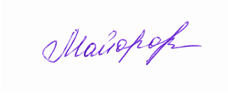 Майоров